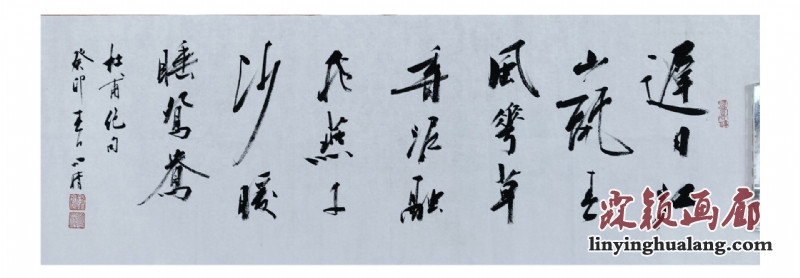 遲日江
山麗春
風華草
香泥融
飛燕子
沙暖
睡鴛鴦
杜甫绝句
癸卯春日
霖颖画廊
linyinghualang.com